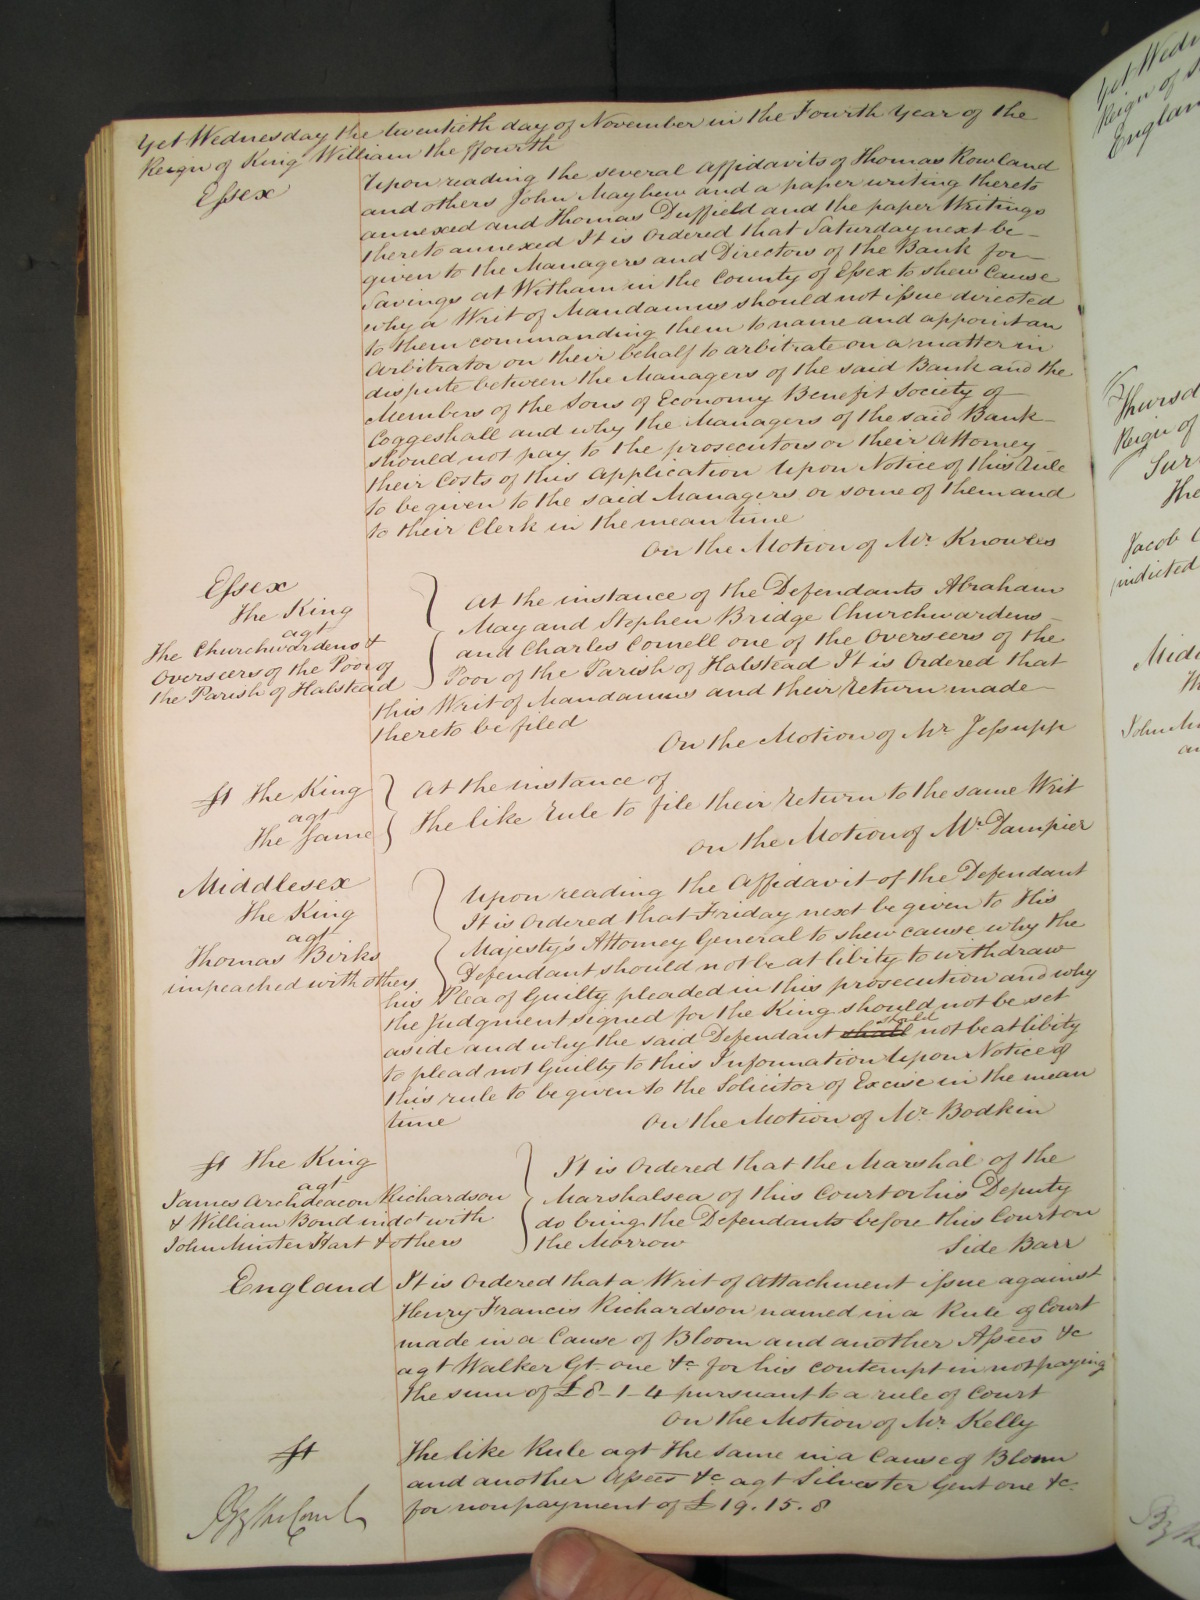 Yet Wednesday the twentieth day of November in the Fourth Year of the
Reign of King William the ffourth
Essex
Upon reading the several Affidavits of Thomas Rowland
and others John Mayhew and a paper writing thereto
annexed and Thomas Duffield and the paper Writings
thereto annexed It is Ordered that Saturday next be
given to the Managers and Directors of the Bank for
Savings at Witham in the County of Essex to shew Cause
why a Writ of Mandamus should not issue directed
to them commanding them to name and appoint an
Arbitrator on their behalf to arbitrate on a matter in
dispute between the Managers of the said Bank and the
Members of the Sons of Economy Benefit Society of
Coggeshall and why the Managers of the said Bank
should not pay to the prosecutors or their Attorney
their Costs of this Application Upon Notice of this Rule
to be given to the said Managers or some of them and
to their Clerk in the mean time
On the Motion of Mr. Knowles
Essex
The King
agt
The Churchwardens &
Overseers of the Poor of
the Parish of Halstead
At the instance of the Defendants Abraham
May and Stephen Bridge Churchwardens
and Charles Cornell one of the Overseers of the
Poor of the Parish of Halstead It is Ordered that
this Writ of Mandamus and their Return made
thereto be filed
On the Motion of Mr Jessupp
The King
agt
The Same
At the instance of
The like Rule to file their Return to the same Writ
On the Motion of Mr. Dampier
Middlesex
The King
agt
Thomas Birks
impeached with others
Upon reading the Affidavit of the Defendant
It is Ordered that Friday next be given to His
Majesty's Attorney General to shew cause why the
Defendant should not be at libity to withdraw
his Plea of Guilty pleaded in this prosecution and why
the Judgment signed for the King should not be set
aside and why the said Defendant shall should not be at libity
to plead not Guilty to this Information Upon Notice of
this rule to be given to the Solicitor of Excise in the mean
time
On the Motion of Mr. Bodkin
The King
agt
James Archdeacon Richardson
& William Bond indct with
John Minter Hart & others
It is Ordered that the Marshal of the
Marshalsea of this Court or his Deputy
do bring the Defendants before this Court on
the Morrow
Side Barr
England
It is Ordered that a Writ of Attachment issue against
Henry Francis Richardson named in a Rule of Court
made in a Cause of Bloom and another Assees &c
agt Walker Gt one &c for his contempt in not paying
the sum of £8-1-4 pursuant to a rule of Court
On the Motion of Mr. Kelly
The like Rule agt the same in a Cause of Bloom
and another Assees &c agt Silvester Gent one &c
for nonpayment of £19.15.8
By the Court